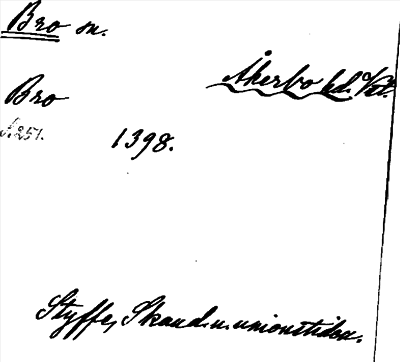 Bro sn.
Åkerbo hd. Vstl.
Bro
S. 251.
1398.
Styffe, Skand. u. unionstiden.